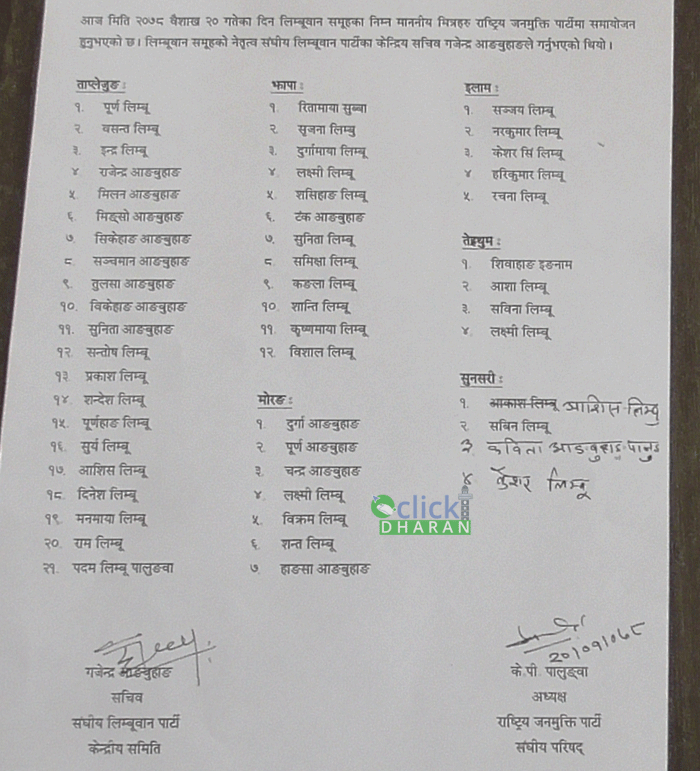 आज मिति २०७८ वैशाख २० गतेका दिन लिम्बूवान समूहका निम्न माननीय मित्रहरु राष्ट्रिय जनमुक्ति पार्टीमा समायोजन
हुनुभएको छ। लिम्बूवान समूहको नेतृत्व संघीय लिम्बूवान पार्टीका केन्द्रिय सचिव गजेन्द्र आङबुहाङले गर्नुभएको थियो।
ताप्लेजुङ :
१. पूर्ण लिम्बू
२. वसन्त लिम्बू
३. इन्द्र लिम्बू
४. राजेन्द्र आङबुहाङ
५. मिलन आङबुहाङ
६. मिङ्सो आङबुहाङ
७. सिकेहाङ आङबुहाङ
८. सञ्चमान आङबुहाङ
९. तुलसा आङबुहाङ
१०. विकेहाङ आङबुहाङ
११. सुनिता आङबुहाङ
१२. सन्तोष लिम्बू
१३. प्रकाश लिम्बू
१४. शन्देश लिम्बू
१५. पूर्णहाङ लिम्बू
१६. सुर्य लिम्बू
१७. आशिस लिम्बू
१८. दिनेश लिम्बू
१९. मनमाया लिम्बू
२०. राम लिम्बू
२१. पदम लिम्बू पालुङवा
झापा :
१. रितामाया सुब्बा
२. सृजना लिम्बु
३. दुर्गामाया लिम्बू
४. लक्ष्मी लिम्बू
५. शसिहाङ लिम्बू
६. टंक आङबुहाङ
७. सुनिता लिम्बू
८. समिक्षा लिम्बू
९. कङला लिम्बू
१०. शान्ति लिम्बू
११. कृष्णमाया लिम्बू
१२. विशाल लिम्बू
मोरङ :
१. दुर्गा आङबुहाङ
२. पूर्ण आङबुहाङ
३. चन्द्र आङबुहाङ
४. लक्ष्मी लिम्बू
५. विक्रम लिम्बू
६. शन्त लिम्बू
७. हाङसा आङबुहाङ
इलाम :
१. सञ्जय लिम्बू
२. नरकुमार लिम्बू
३. केशर सिं लिम्बू
४ हरिकुमार लिम्बू
५. रचना लिम्बू
तेह्रथुम :
१. शिवाहाङ इङनाम
२. आशा लिम्बू
३. सविना लिम्बू
४. लक्ष्मी लिम्बू
सुनसरी :
१. आकाश लिम्बू आशिस लिम्बु
२ सबिन लिम्बू
३. कविता आङबुहाङ पालुङ
४ केशर लिम्बू
click
DHARAN
गजेन्द्र आङबुहाङ
सचिव
संघीय लिम्बूवान पार्टी
केन्द्रीय समिति
२०।०१।०७८
के.पी. पालुङ्वा
अध्यक्ष
राष्ट्रिय जनमुक्ति पार्टी
संघीय परिषद्